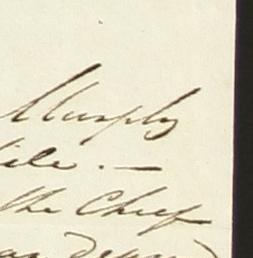 Murphy
ile. —
the Chief